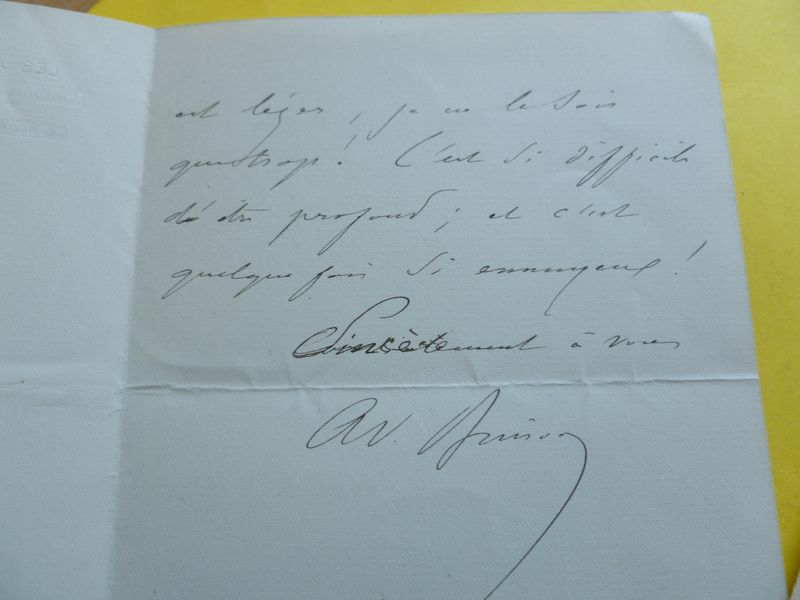 est léger, je ne le sais
que trop! C'est si difficile
d'être profond; et c'est
quelque fois si ennuyeux!
Sincèrement à vous
Ad. Brisson
LES